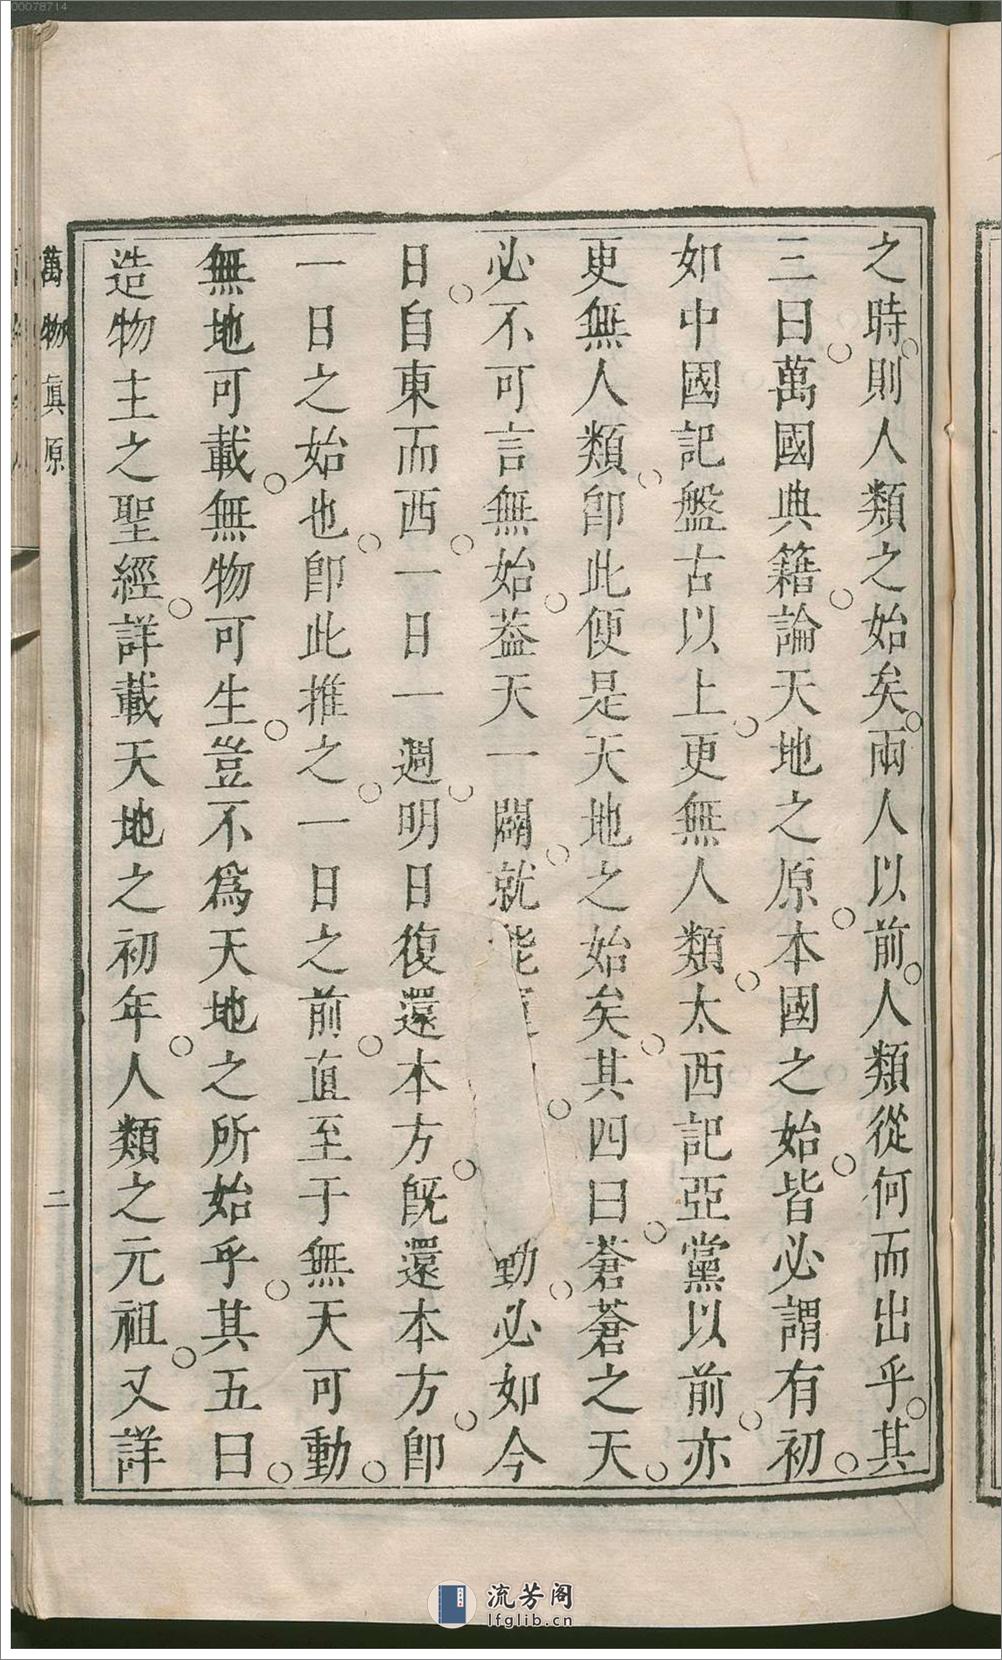 00078714
之時則人類之始矣兩人以前人類從何而出乎其
三曰萬國典籍論天地之原本國之始皆必謂有初
如中國記盤古以上更無人類太西記亞黨以前亦
更無人類卽此便是天地之始矣其四曰蒼蒼之天
必不可言無始葢天一闢就能動必如今
日自東而西一日一週明日復還本方旣還本方卽
一日之始也卽此推之一日之前直至于無天可動
無地可載無物可生豈不爲天地之所始乎其五曰
造物主之聖經詳載天地之初年人類之元祖又詳
萬物眞原
二
流芳阁
lfglib.cn